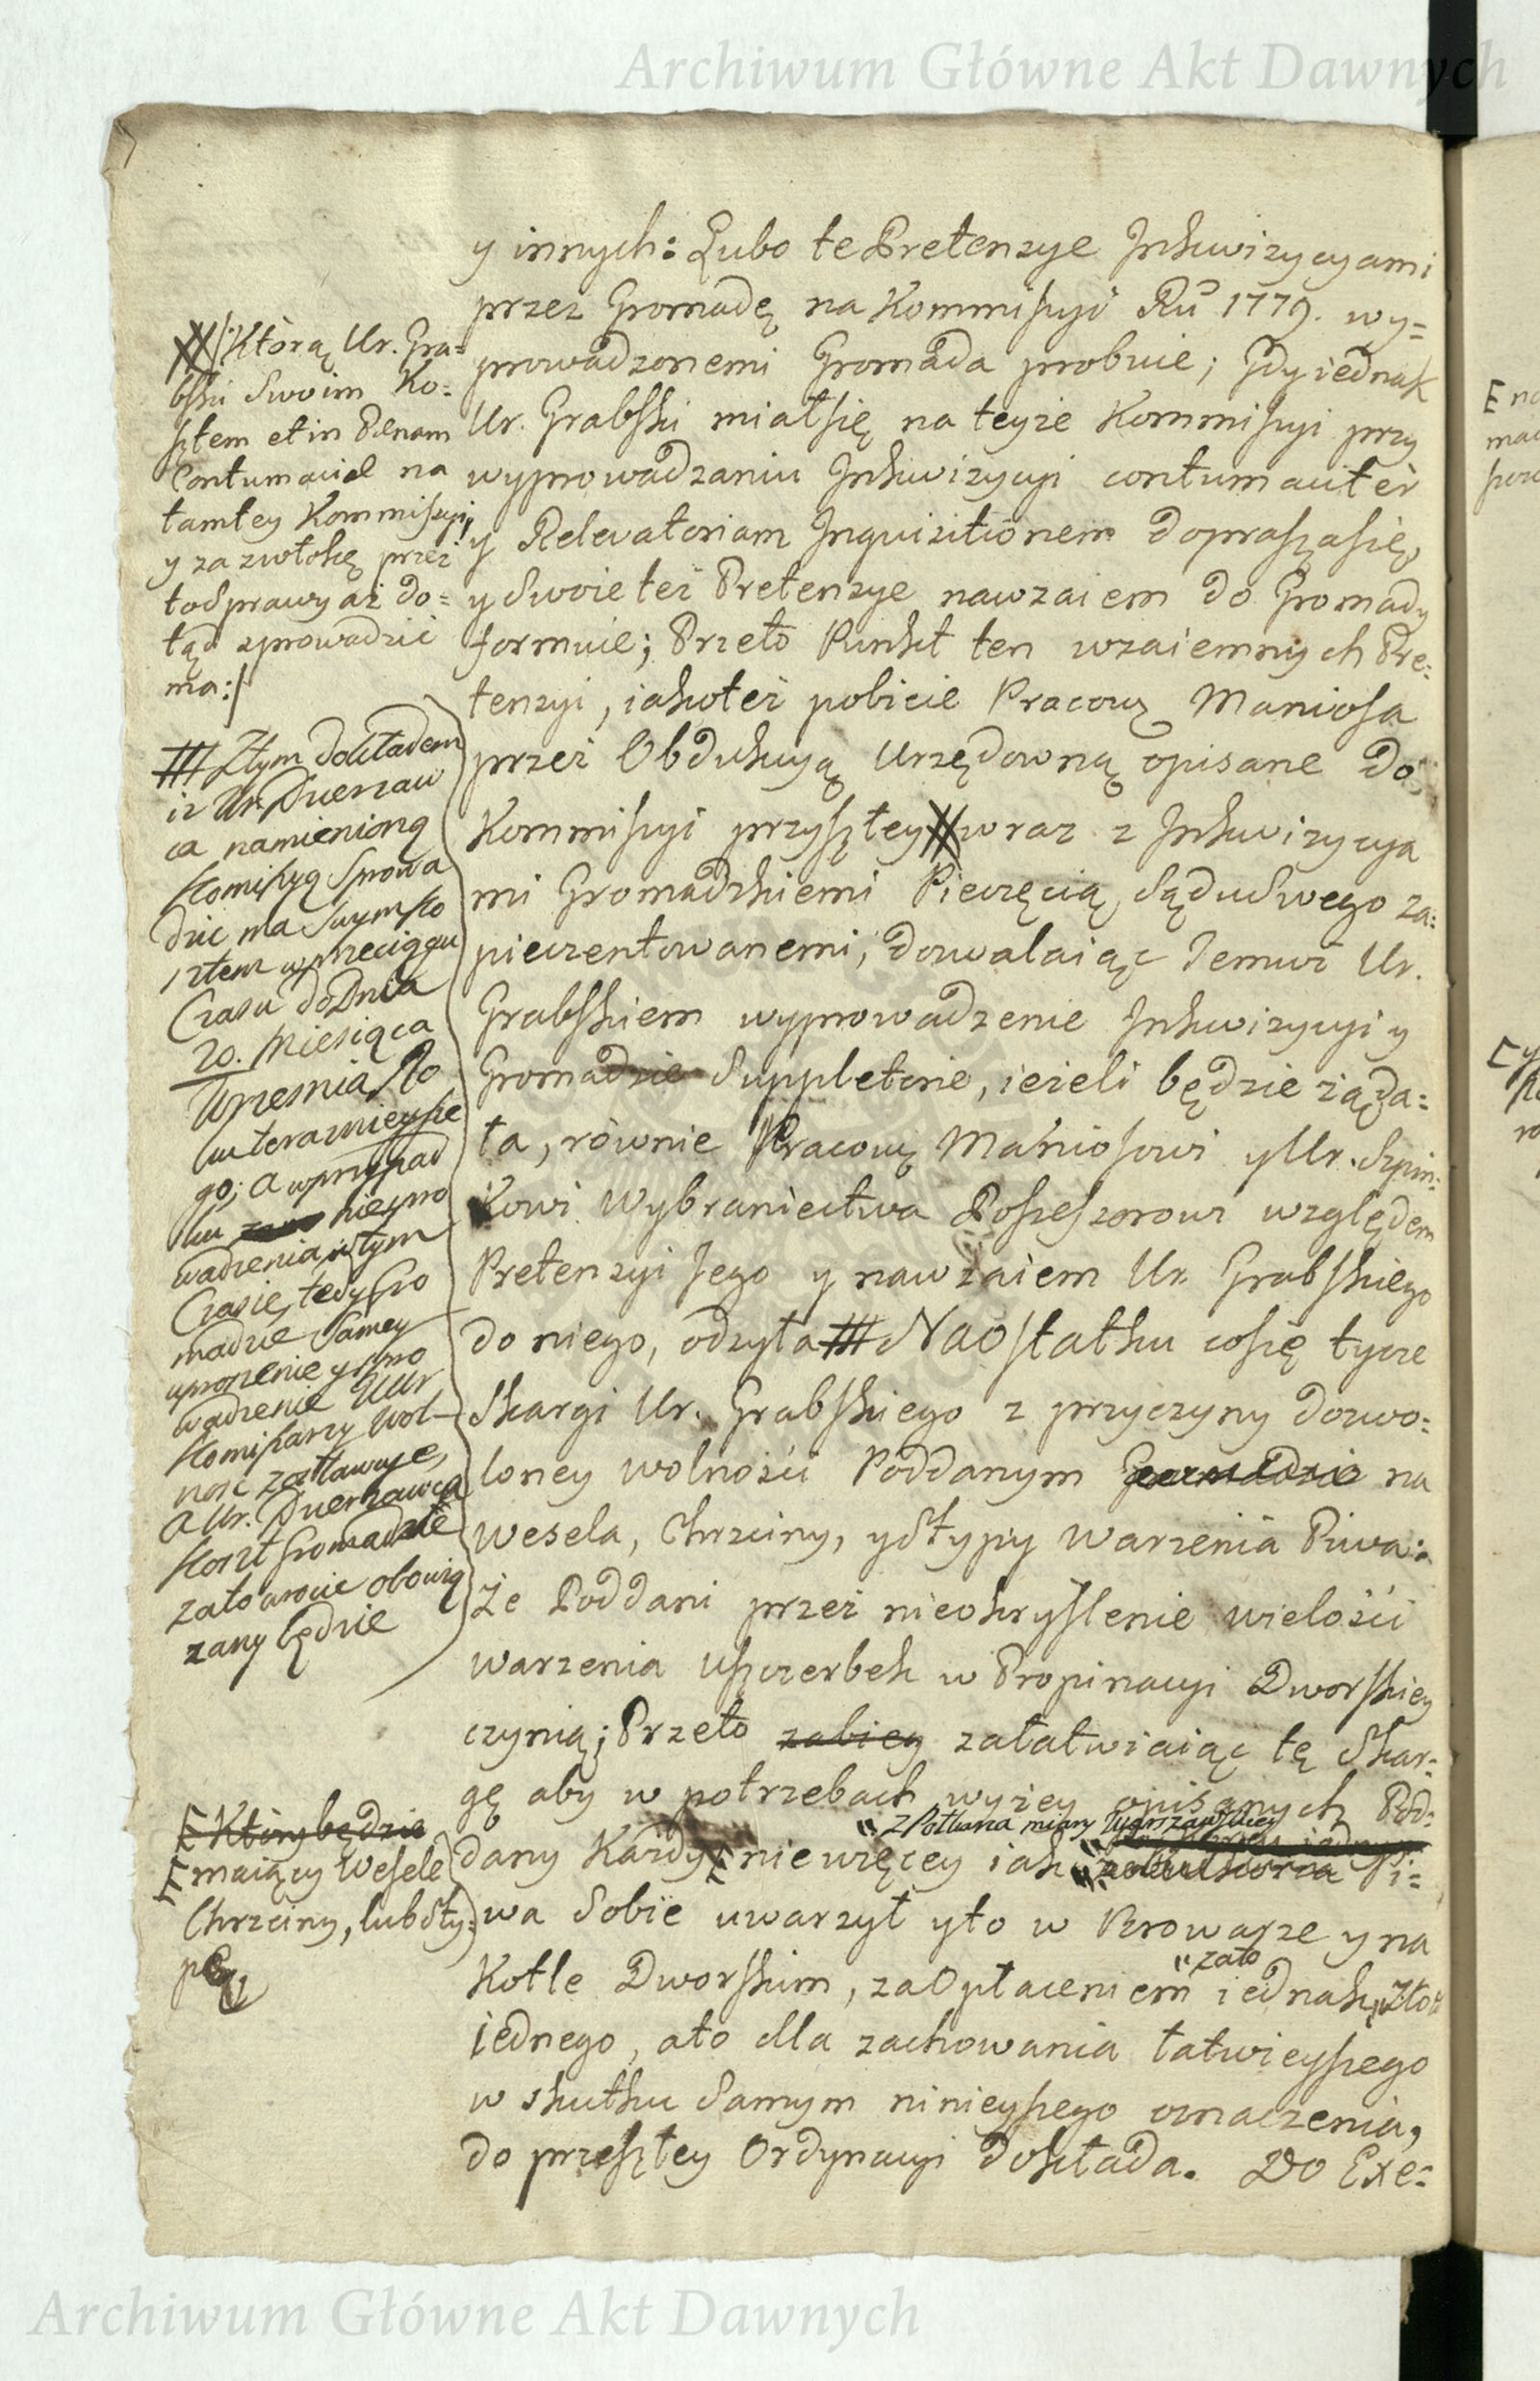 Archiwum Główne Akt Dawnych
y innych: Lubo te Pretensye Inkwizycyami
przez Gromadę na Kommissyi Ru 1779. wy=
prowadzonemi Gromada probuie; gdy iednak
Ur. Grabski miał się na teyże Kommissyi przy
wyprowadzaniu Inkwizycyi contumaciter
y Relevatoriam Inquisitionem doprasza się,
y Swoie też Pretensye nawzaiem do Gromady
formuie; Przeto Punkt ten wzaiemnych Pre=
tensyi, iako też pobicie Pracow. Maniosa
przez Obdukcyą Urzędowną opisane do
Kommissyi przyszłey # wraz z Inkwizycya
mi Gromadzkiemi Pieczęcią Sądu Swego za=
pieczentowanemi, dozwalaiąc Temuż Ur.
Grabskiem wyprowadzenie Inkwizycyi y
Gromadzie Suppletorie, ieżeli będzie żąda=
ła, równie Pracow. Maniosowi y Ur. Szpin=
kowi Wybraniectwa Possessorowi względem
Pretensyi Jego y nawzaiem Ur. Grabskiego
do niego, odsyła ## Na ostatku co się tycze
Skargi Ur. Grabskiego z przyczyny dozwo=
loney wolności Poddanym Gromadzie na
Wesela, Chrzciny, y Stypy Warzenia Piwa:
Że Poddani przez nieokryślenie wielości
warzenia uszczerbek w Propinacyi Dworskiey
czynią; Przeto załatwiaiąc tę Skar=
gę aby w potrzebach wyżey opisanych Pod=
z Półkorca miary Warszawskiey
dany Każdy E nie więcey iak Pi=
wa Sobie uwarzył y to w Browarze y na
zato
Kotle Dworskim, za Opłaceniem iednak Złot
iednego, a to dla zachowania łatwieyszego
w skutku Samym ninieyszego oznaczenia,
do przeszłey Ordynacyi dokłada. Do Exe=
#/: Którą Ur. Gra=
bski Swoim Ko=
sztem et in Pænam
Contumaciæ na
tamtey Kommissyi,
y za zwłokę przez
to Sprawy aż do=
tąd sprowadzić
ma:/
## Z tym dokładem
iż Ur. Dzierzaw
ca namienioną
Komissyą Sprowa
dzić ma Swym Ko
sztem w przeciągu
Czasu do Dnia
20. Miesiąca
Wrzesnia Ro
ku teraznieysze
go; a w przypad
ku niepro
wadzenia w tym
Czasie, tedy Gro
madzie Samey
uproszenie y spro
wadzenie UUr
Komissarzy Wol-
ność zostawuje,
a Ur. Dzierzawca
Koszt Gromadzie
zato wrócić obowią
zany będzie
E Który będzie
E maiący Wesele
Chrzciny, lub Sty=
pę
Archiwum Główne Akt Dawnych